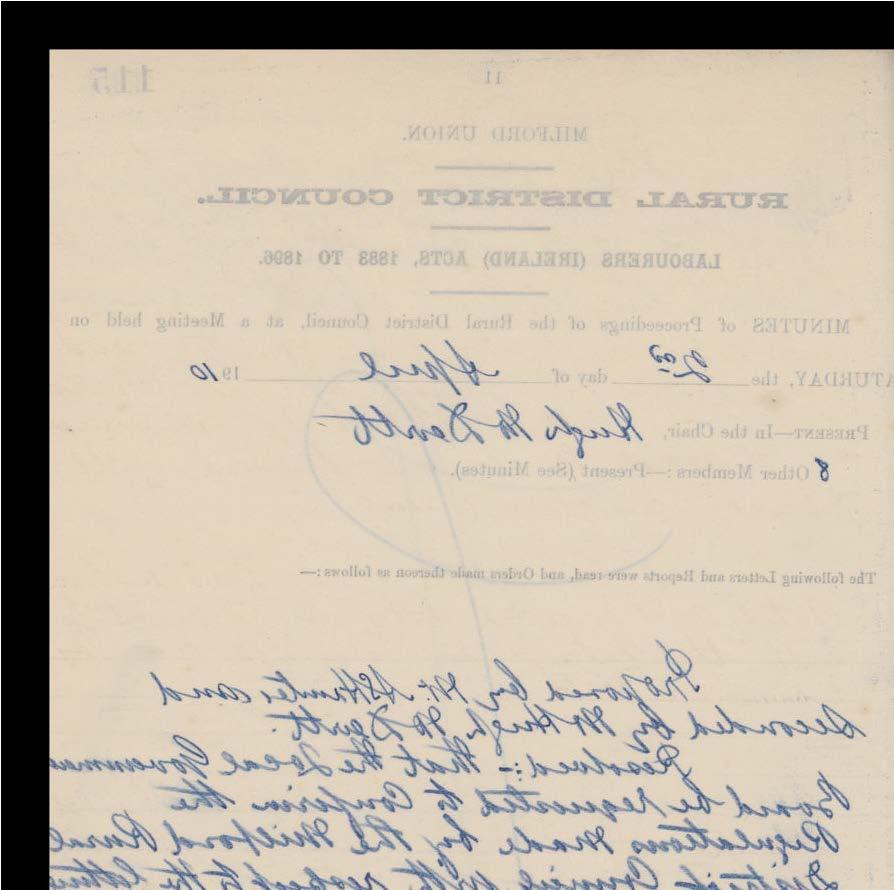 11
115
MILFORD UNION.
RURAL DISTRICT COUNCIL.
LABOURERS (IRELAND) ACTS, 1883 TO 1896.
MINUTES of Proceedings of the Rural District Council, at a Meeting held on
ATURDAY, the 2nd day of April 1910
PRESENT—In the Chair, Hugh McDevitt
8 Other Members:—Present (See Minutes).
The following Letters and Reports were read, and Orders made thereon as follows:—
Proposed by Mr. Hunter and
Seconded by Mr Hugh McDevitt.
Resolved:- That the Local Governmen
Board be requested to Confirm the
Regulations Made by the Milford Rural
District Council with respect to the letting